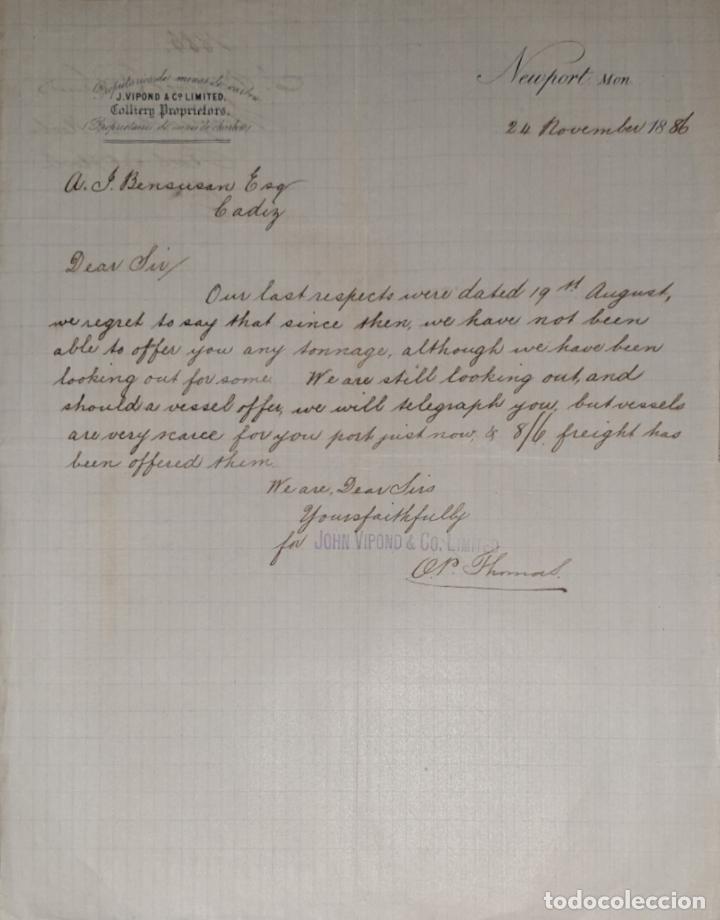 Propietarios de minas de carbon
J. VIPOND & Co LIMITED.
Colliery Proprietors.
(Propietario de minas de carbon)
Newport Mon
24 November 1886
A. J. Bensusan Esq
Cadiz
Dear Sir/
Our last respects were dated 19st August,
we regret to say that since then, we have not been
able to offer you any tonnage, although we have been
looking out for some. We are still looking out, and
should a vessel offer, we will telegraph you, but vessels
are very scarce for you port just now, & 8/6 freight has
been offered them.
We are, Dear Sirs
Yours faithfully
for JOHN VIPOND & CO. LIMITED
O.P. Thomas.
todocoleccion
todocoleccion.net